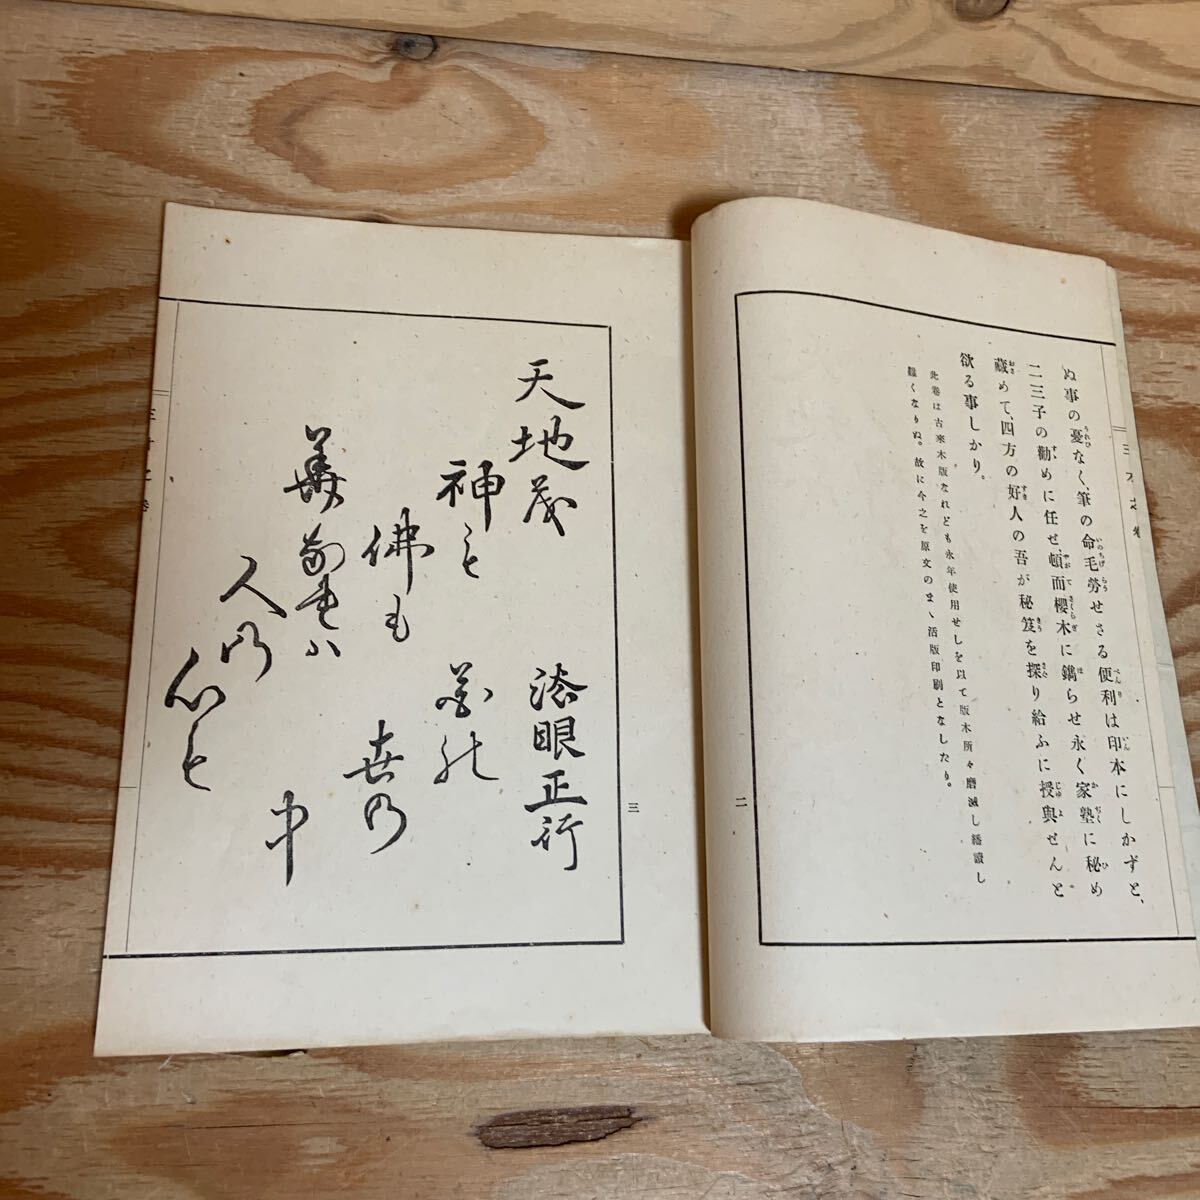 ぬ事の憂なく、筆の命毛勞せさる便利は印本にしかずと、
二三子の勸めに任せ、頓而櫻木に鐫らせ永く家塾に秘め
藏めて、四方の好人の吾が秘笈を探り給ふに授與せんと
欲る事しかり。
此卷は古來木版なれども永年使用せしを以て版木所々磨滅し繙讀し
難くなりぬ。故に今之を原文のまゝ活版印刷となしたり。
二
三
法眼正行
天地茂
神も
佛も
世乃
中
人乃
心も